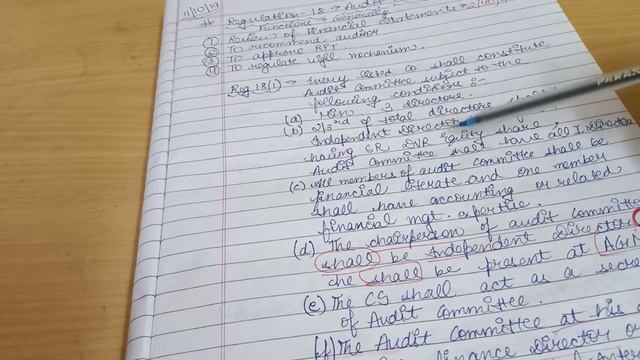 11/10/19
# Regulation-18 → Audit
Functions → Generally
① Review of Financial Statements
② To recommend auditor
③ To approve RPT
④ To regulate vigil mechanism.
Reg 18(1) → Every listed co shall constitute
Audit Committee subject to the
following conditions :-
(a) Min. 3 directors.
(b) 2/3rd of total directors shall
Independent Director
having SR equity share,
Audit Committee shall have all I. Directors
(c) All members of audit committee shall be
financial literate and one member
shall have accounting or related
financial mgt. expertise.
(d) The chairperson of audit committee
shall be Independent Director
he shall be present at AGM
(e) The CS shall act as a secre
of Audit Committee.
(f) The Audit Committee at his
finance director or